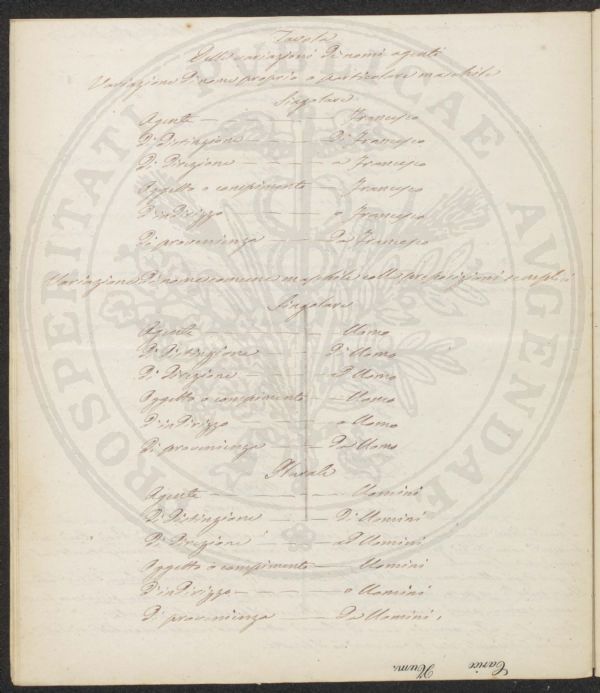 Tavola
Delle variazioni di nomi agenti
Variazione di nome proprio o particolare maschile
Singolare
Agente — Francesco
Di Distinzione — Di Francesco
Di Direzione — a Francesco
Oggetto o compimento — Francesco
D'indirizzo — o Francesco
Di provenienza — Da Francesco
Variazione di nome comune maschile colle preposizioni semplici
Singolare
Agente — Uomo
Di Distinzione — Di Uomo
Di Direzione — ad Uomo
Oggetto o compimento — Uomo
D'indirizzo — o Uomo
Di provenienza — Da Uomo
Plurale
Agente — Uomini
Di Distinzione — Di Uomini
Di Direzione — ad Uomini
Oggetto o compimento — Uomini
D'indirizzo — o Uomini
Di provenienza — Da Uomini.
PROSPERITATI PUBLICAE AUGENDAE